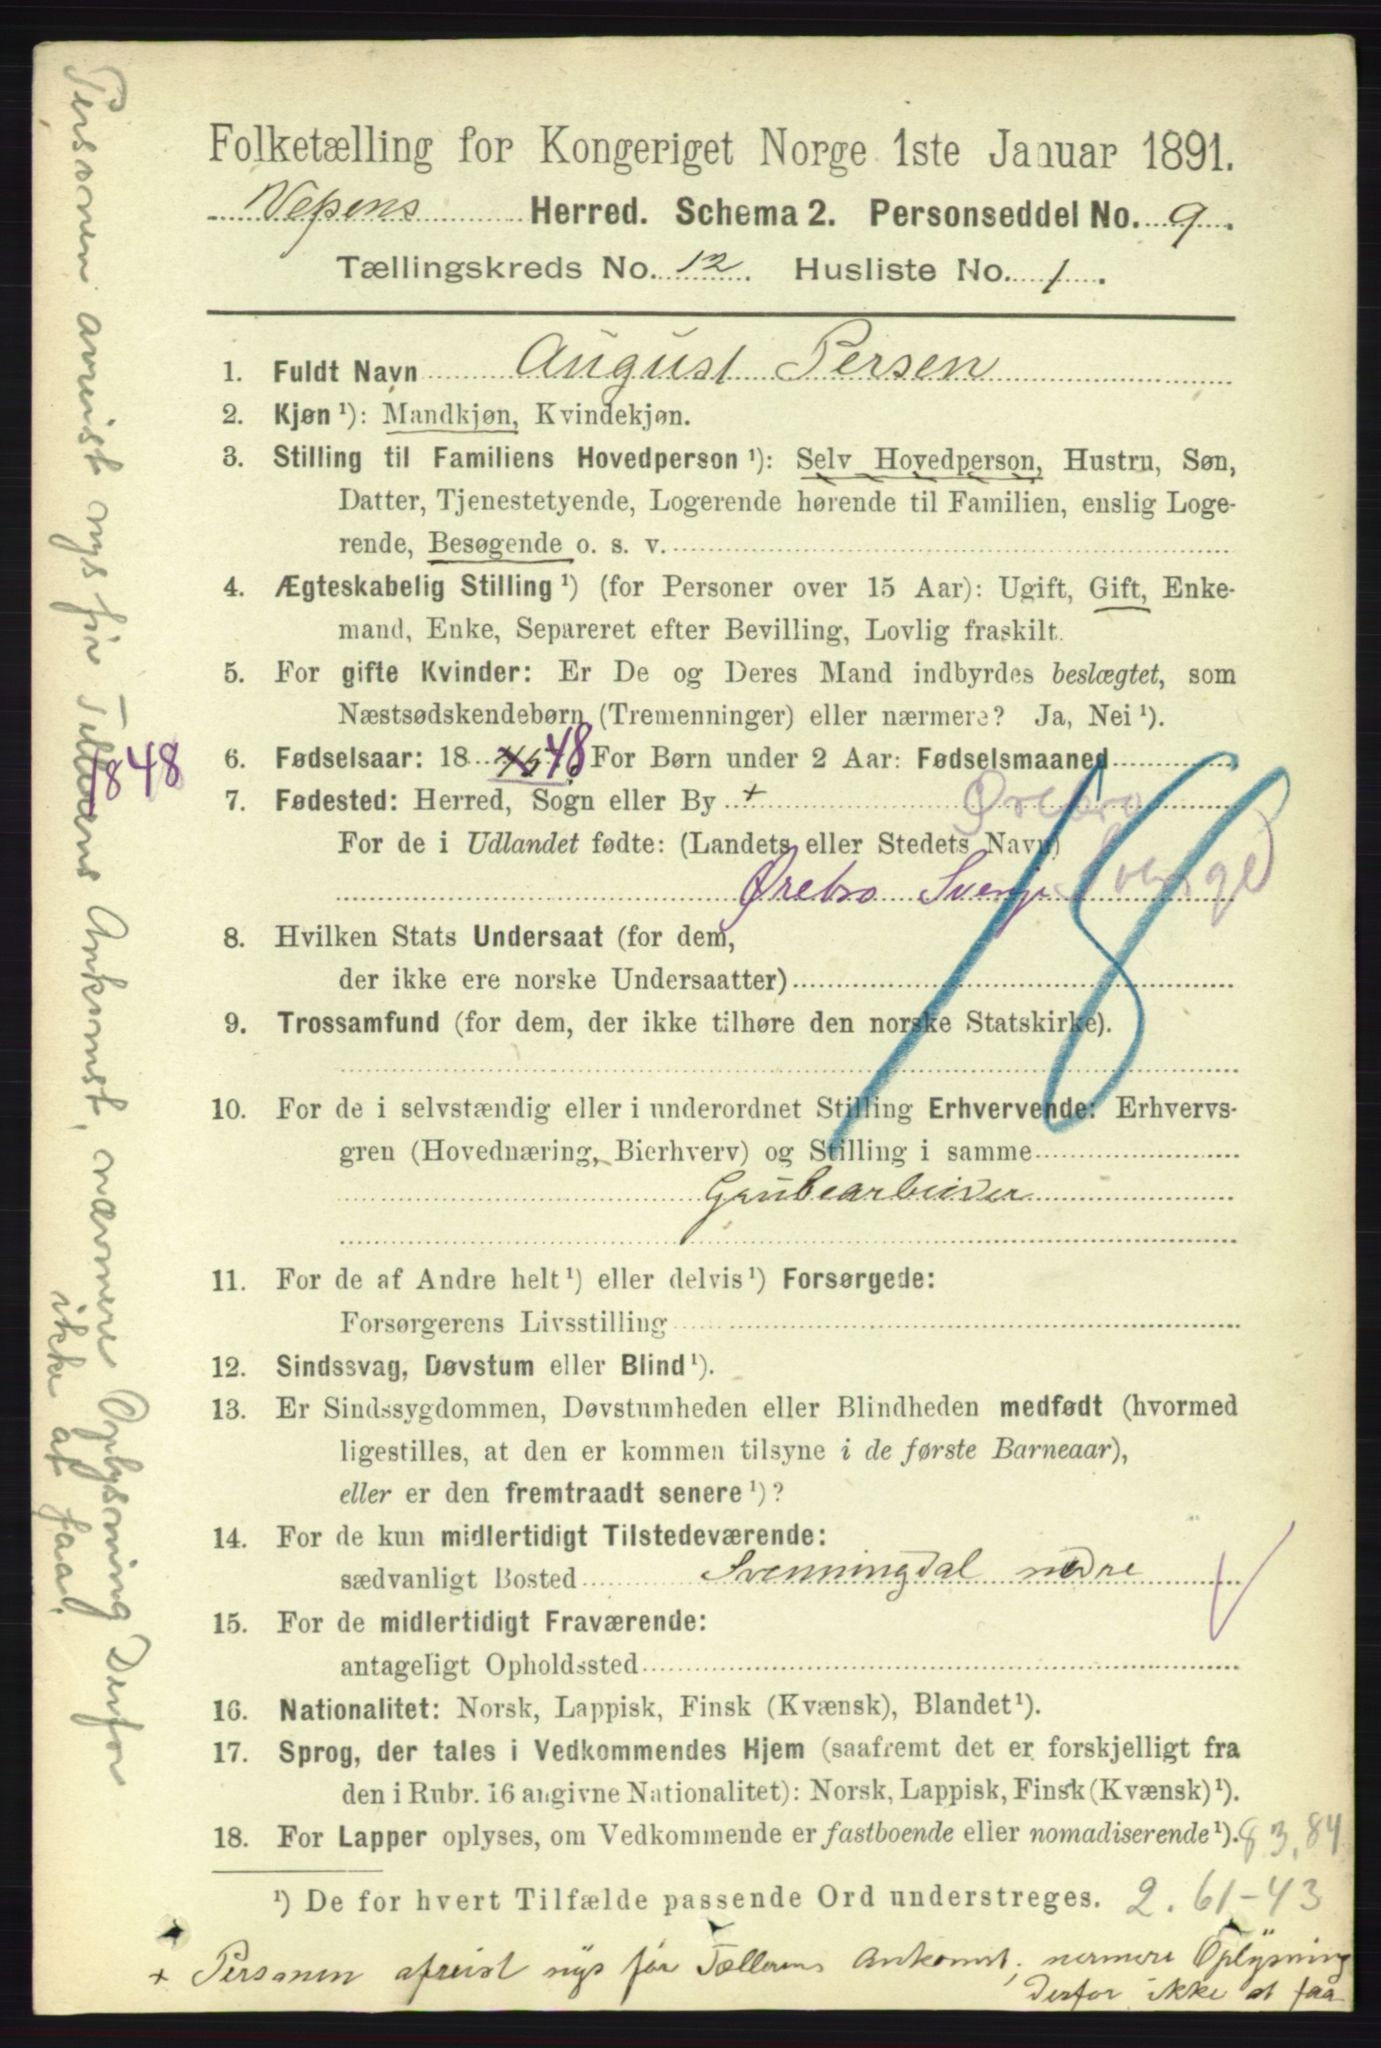 Folketælling for Kongeriget Norge 1ste Januar 1891.
Vefsens Herred. Schema 2. Personseddel No. 9.
Tællingskreds No. 12. Husliste No. 1.
1. Fuldt Navn August Persen
2. Kjøn ¹): Mandkjøn, Kvindekjøn.
3. Stilling til Familiens Hovedperson ¹): Selv Hovedperson, Hustru, Søn,
Datter, Tjenestetyende, Logerende hørende til Familien, enslig Loge-
rende, Besøgende o. s. v.
4. Ægteskabelig Stilling ¹) (for Personer over 15 Aar): Ugift, Gift, Enke-
mand, Enke, Separeret efter Bevilling, Lovlig fraskilt.
5. For gifte Kvinder: Er De og Deres Mand indbyrdes beslægtet, som
Næstsødskendebørn (Tremenninger) eller nærmere? Ja, Nei ¹).
6. Fødselsaar: 18 48 For Børn under 2 Aar: Fødselsmaaned
1848
7. Fødested: Herred, Sogn eller By + Ørebro
For de i Udlandet fødte: (Landets eller Stedets Navn)
Ørebro Sverige
8. Hvilken Stats Undersaat (for dem,
der ikke ere norske Undersaatter)
9. Trossamfund (for dem, der ikke tilhøre den norske Statskirke).
10. For de i selvstændig eller i underordnet Stilling Erhvervende: Erhvervs-
gren (Hovednæring, Bierhverv) og Stilling i samme
Grubearbeider
11. For de af Andre helt ¹) eller delvis ¹) Forsørgede:
Forsørgerens Livsstilling
12. Sindssvag, Døvstum eller Blind ¹).
13. Er Sindssygdommen, Døvstumheden eller Blindheden medfødt (hvormed
ligestilles, at den er kommen tilsyne i de første Barneaar),
eller er den fremtraadt senere ¹)?
14. For de kun midlertidigt Tilstedeværende:
sædvanligt Bosted Svenningdal nedre
15. For de midlertidigt Fraværende:
antageligt Opholdssted
16. Nationalitet: Norsk, Lappisk, Finsk (Kvænsk), Blandet ¹).
17. Sprog, der tales i Vedkommendes Hjem (saafremt det er forskjelligt fra
den i Rubr. 16 angivne Nationalitet): Norsk, Lappisk, Finsk (Kvænsk) ¹).
18. For Lapper oplyses, om Vedkommende er fastboende eller nomadiserende ¹).
83,84
¹) De for hvert Tilfælde passende Ord understreges.
2. 61-43
+ Personen afreist nys før Tællerens Ankomst, nermere Oplysning
derfor ikke at faa
Personen avreist nys før Tællerens Ankomst, nærmere Oplysning Derfor
ikke at faa.